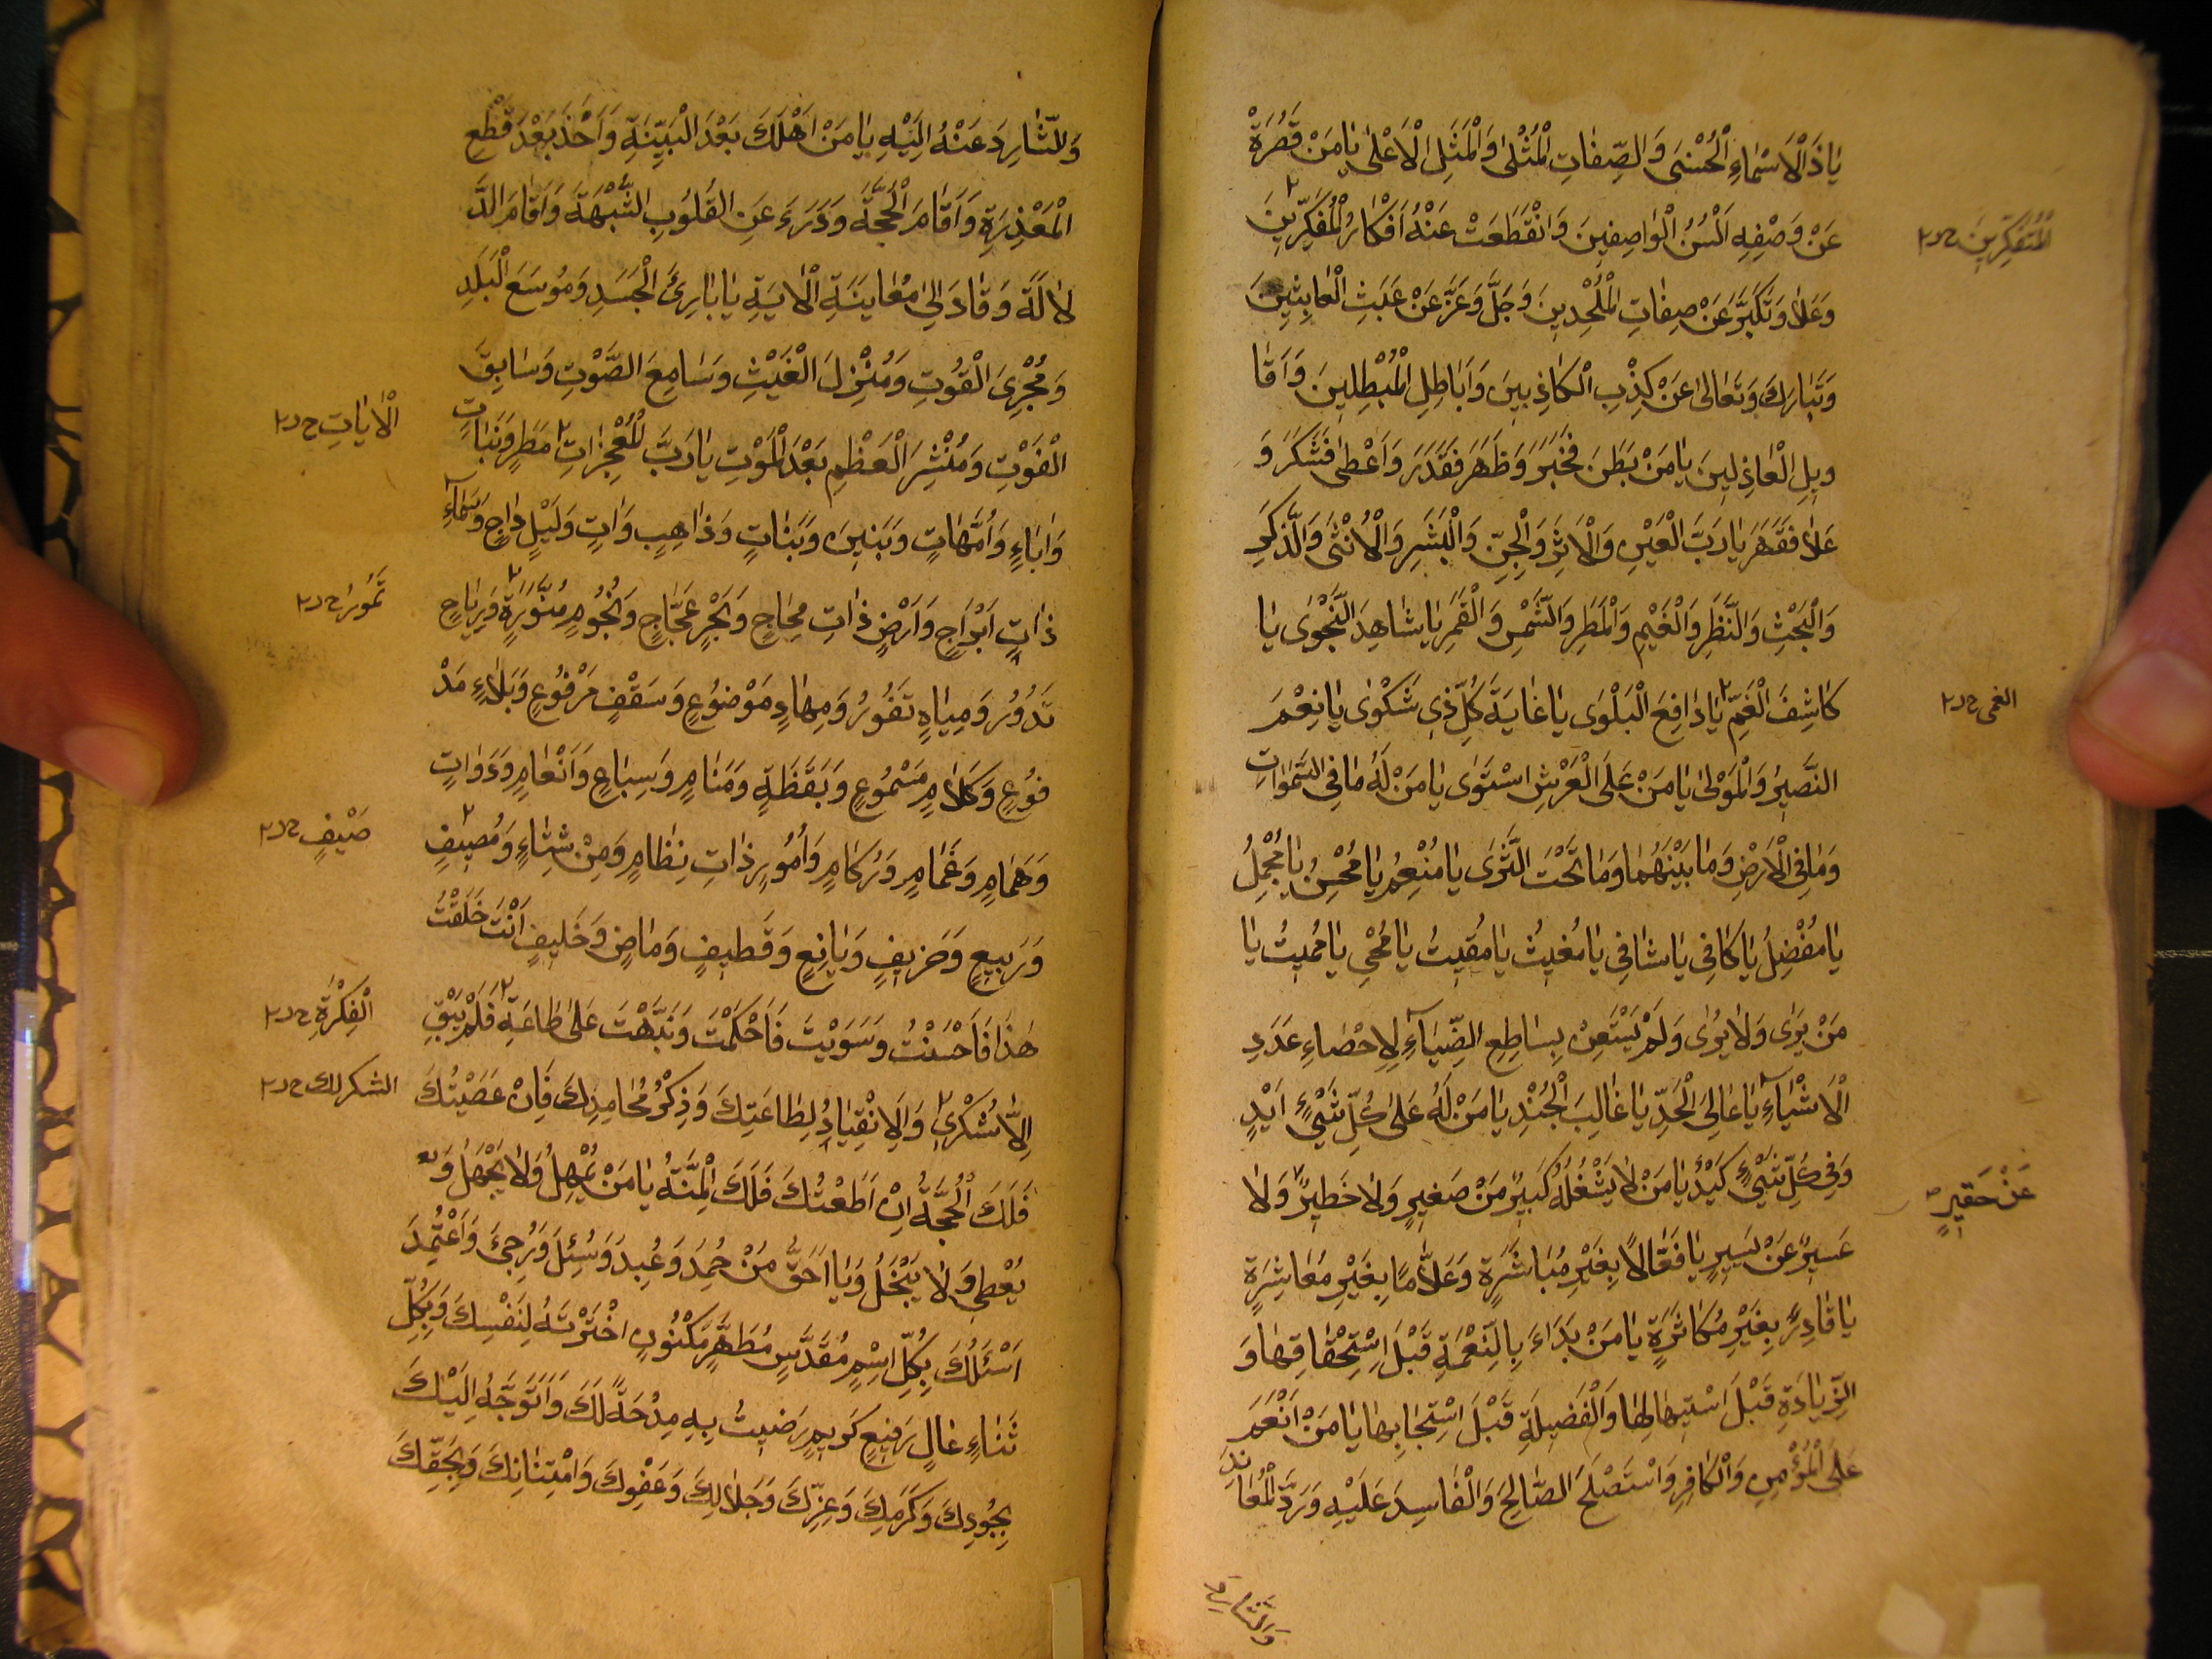 يَا ذَا الْاَسْمَاءِ الْحُسْنٰى وَالصِّفَاتِ الْمُثْلٰى وَالْمَثَلِ الْاَعْلٰى يَا مَنْ قَصُرَتْ
عَنْ وَصْفِهِ اَلْسُنُ الْوَاصِفِينَ وَانْقَطَعَتْ عَنْهُ اَفْكَارُ الْمُفَكِّرِينَ
الْمُتَفَكِّرِينَ
وَعَلَا وَتَكَبَّرَ عَنْ صِفَاتِ الْمُلْحِدِينَ وَجَلَّ وَعَزَّ عَنْ عَبَثِ الْعَابِثِينَ
وَتَبَارَكَ وَتَعَالٰى عَنْ كِذْبِ الْكَاذِبِينَ وَاَبَاطِلِ الْمُبْطِلِينَ وَاَقَا
وِيلِ الْعَاذِلِينَ يَا مَنْ بَطَنَ فَخَبَرَ وَظَهَرَ فَقَدَرَ وَاَعْطٰى فَشَكَرَ وَ
عَلَا فَقَهَرَ يَا رَبَّ الْعَيْنِ وَالْاَثَرِ وَالْجِنِّ وَالْبَشَرِ وَالْاُنْثٰى وَالذَّكَرِ
وَالْبَحْثِ وَالنَّظَرِ وَالْغَيْمِ وَالْمَطَرِ وَالشَّمْسِ وَالْقَمَرِ يَا شَاهِدَ النَّجْوٰى يَا
كَاشِفَ الْغَمِّ يَا دَافِعَ الْبَلْوٰى يَا غَايَةَ كُلِّ ذِي شَكْوٰى يَا نِعْمَ
الغمى
النَّصِيرُ وَالْمَوْلٰى يَا مَنْ عَلَى الْعَرْشِ اسْتَوٰى يَا مَنْ لَهُ مَا فِي السَّمٰوَاتِ
وَمَا فِي الْاَرْضِ وَمَا بَيْنَهُمَا وَمَا تَحْتَ الثَّرٰى يَا مُنْعِمُ يَا مُحْسِنُ يَا مُجْمِلُ
يَا مُفْضِلُ يَا كَافِي يَا شَافِي يَا مُغِيثُ يَا مُقِيتُ يَا مُحْيِي يَا مُمِيتُ يَا
مَنْ يَرٰى وَلَا يُرٰى وَلَمْ يَسْتَعِنْ بِسَاطِعِ الضِّيَاءِ لِاِحْصَاءِ عَدَدِ
الْاَشْيَاءِ يَا عَالِيَ الْجَدِّ يَا غَالِبَ الْجُنْدِ يَا مَنْ لَهُ عَلٰى كُلِّ شَيْءٍ اَيْدٍ
وَفِي كُلِّ شَيْءٍ كَيْدٌ يَا مَنْ لَا يَشْغَلُهُ كَبِيرٌ مَنْ صَغِيرٍ وَلَا خَطِيرٌ وَلَا
عَنْ حَقِيرٍ
عَسِيرٌ عَنْ يَسِيرٍ يَا فَعَّالًا بِغَيْرِ مُبَاشَرَةٍ وَعَلَّامًا بِغَيْرِ مُعَاشِرَةٍ
يَا قَادِرًا بِغَيْرِ مُكَاثَرَةٍ يَا مَنْ بَدَاءَ بِالنِّعْمَةِ قَبْلَ اسْتِحْقَاقِهَا وَ
الزِّيَادَةِ قَبْلَ اسْتِيهَالِهَا وَالْفَضِيلَةِ قَبْلَ اسْتِيجَابِهَا يَا مَنْ اَنْعَمَ
عَلَى الْمُؤْمِنِ وَالْكَافِرِ وَاسْتَصْلَحَ الصَّالِحَ وَالْفَاسِدَ عَلَيْهِ وَرَدَّ الْمُعَانِدَ
وَالشَّارِدَ
وَالشَّارِدَ عَنْهُ اِلَيْهِ يَا مَنْ اَهْلَكَ بَعْدَ الْبَيِّنَةِ وَاَخَذَ بَعْدَ قَطْعِ
الْمَعْذِرَةِ وَاَقَامَ الْحُجَّةَ وَدَرَءَ عَنِ الْقُلُوبِ الشُّبْهَةَ وَاَقَامَ الدَّ
لَالَةَ وَقَادَ اِلٰى مُعَايَنَةِ الْاٰيَةِ يَا بَارِئَ الْجَسَدِ وَمُوسَعَ الْبَلَدِ
وَمُجْرِيَ الْقُوتِ وَمُنْزِلَ الْغَيْثِ وَسَامِعَ الصَّوْتِ وَسَابِقَ
الْفَوْتِ وَمُنْشِرَ الْعَظْمِ بَعْدَ الْمَوْتِ يَا رَبَّ الْمُعْجِزَاتِ مَطَرٍ وَنَبَاتٍ
الْاٰيَاتِ
وَاٰبَاءٍ وَاُمَّهَاتٍ وَبَنِينَ وَبَنَاتٍ وَذَاهِبٍ وَاٰتٍ وَلَيْلٍ دَاجٍ وَسَمَاءٍ
ذَاتِ اَبْرَاجٍ وَاَرْضٍ ذَاتِ مِحَاجٍ وَبَحْرٍ عَجَّاجٍ وَنُجُومٍ مُنَوَّرَةٍ وَرِيَاحٍ
تَمُورُ
تَدُورُ وَمِيَاهٍ تَفُورُ وَمِهَادٍ مَوْضُوعٍ وَسَقْفٍ مَرْفُوعٍ وَبَلَاءٍ مَدْ
فُوعٍ وَكَلَامٍ مَسْمُوعٍ وَيَقَظَةٍ وَمَنَامٍ وَسِبَاعٍ وَاَنْعَامٍ وَدَوَابٍ
وَهَوَامٍ وَغَمَامٍ وَرُكَامٍ وَاُمُورٍ ذَاتِ نِظَامٍ وَمِنْ شِتَاءٍ وَمُصِيفٍ
صَيْفٍ
وَرَبِيعٍ وَخَرِيفٍ وَيَانِعٍ وَقَطِيفٍ وَمَاضٍ وَخَلِيفٍ اَنْتَ خَلَقْتَ
هٰذَا فَاَحْسَنْتَ وَسَوَّيْتَ فَاَحْكَمْتَ وَنَبَّهْتَ عَلٰى طَاعَةِ فَلَمْ يَبْقِ
الْفِكْرَةِ
اِلَّا شُكْرِي وَالْاِنْقِيَادُ لِطَاعَتِكَ وَذِكْرُ مَحَامِدِكَ فَاِنْ عَصَيْتُكَ
الشكر لك
فَلَكَ الْحُجَّةُ اِنْ اَطَعْتُكَ فَلَكَ الْمِنَّةُ يَا مَنْ يُمْهِلُ وَلَا يَجْهَلُ وَ
يُعْطِي وَلَا يَبْخَلُ وَيَا اَحَقَّ مَنْ حُمِدَ وَعُبِدَ وَسُئِلَ وَرُجِيَ وَاعْتُمِدَ
اَسْئَلُكَ بِكُلِّ اسْمٍ مُقَدَّسٍ مُطَهَّرٍ مَكْنُونٍ اخْتَرْتَهُ لِنَفْسِكَ وَبِكُلِّ
ثَنَاءٍ عَالٍ رَفِيعٍ كَرِيمٍ رَضِيتَ بِهِ مِدْحَةً لَكَ وَاَتَوَجَّهُ اِلَيْكَ
بِجُودِكَ وَكَرَمِكَ وَعِزِّكَ وَجَلَالِكَ وَعَفْوِكَ وَامْتِنَانِكَ وَبِحَقِّكَ